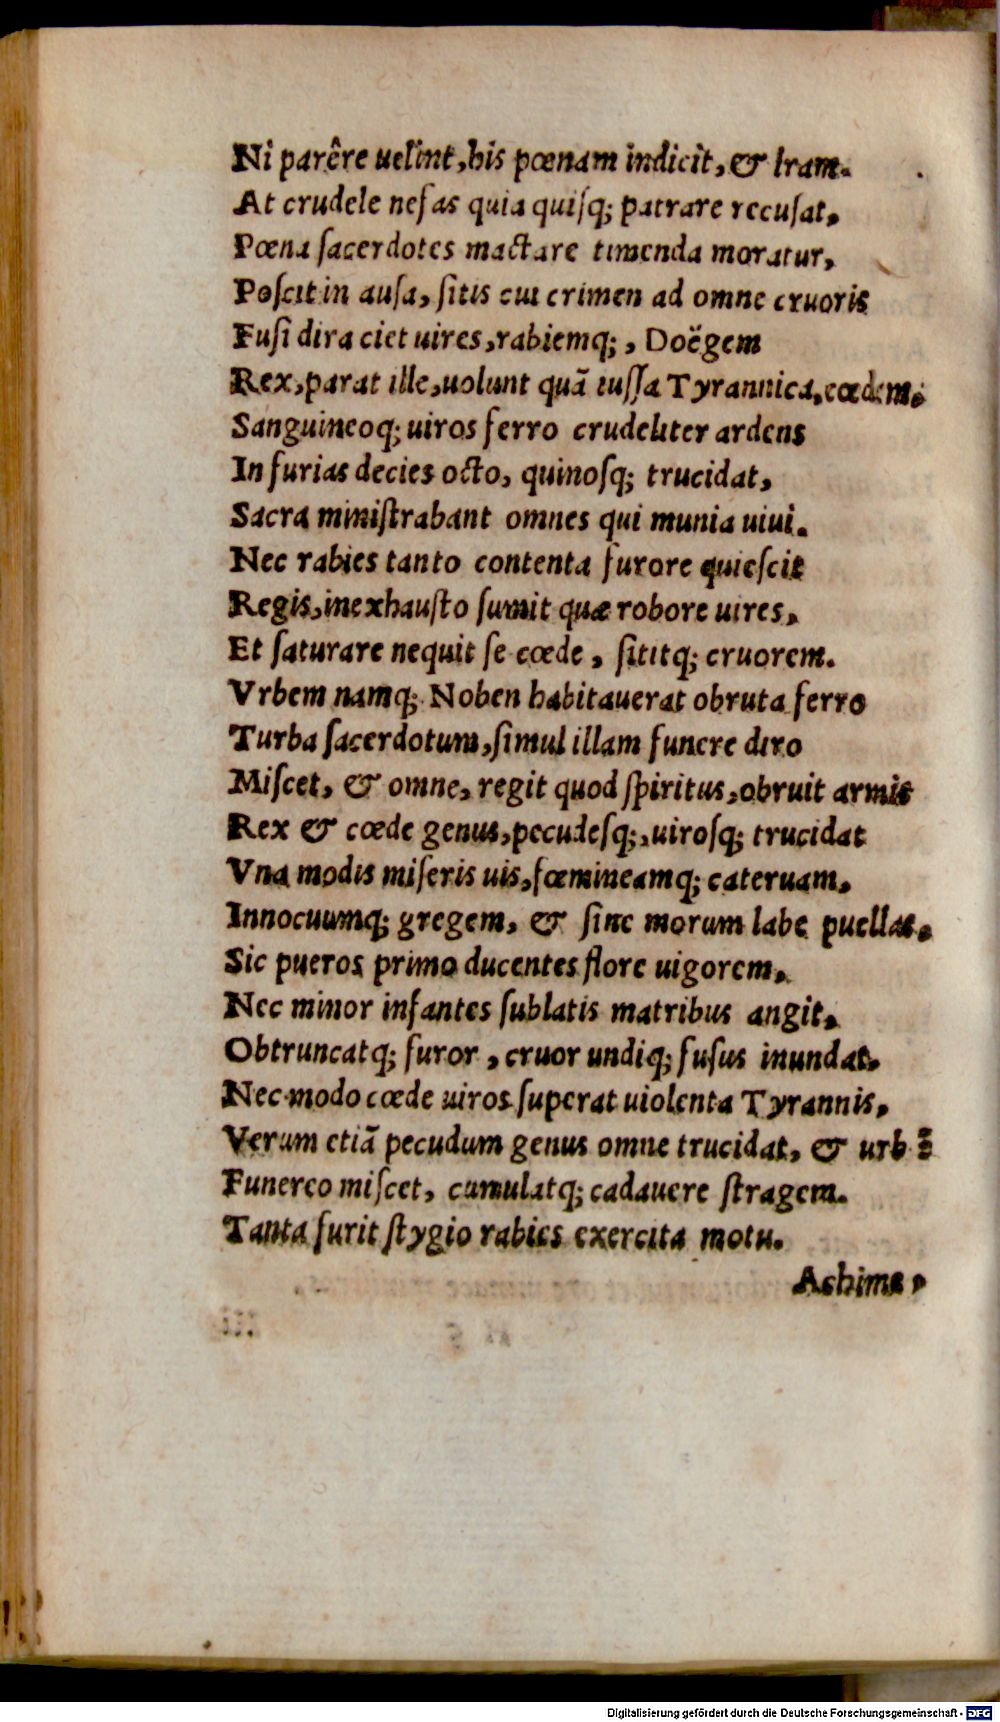 Ni parêre uelint, his pœnam indicit, & Iram.
At crudele nefas quia quiſq; patrare recuſat,
Pœna ſacerdotes mactare timenda moratur,
Poſcit in auſa, ſitis cui crimen ad omne cruoris
Fuſi dira ciet uires, rabiemq;, Doëgem
Rex, parat ille, uolunt quã iuſſa Tyrannica, cœdem.
Sanguineoq; uiros ferro crudeliter ardens
In furias decies octo, quinoſq; trucidat,
Sacra miniſtrabant omnes qui munia uiui.
Nec rabies tanto contenta furore quieſcit
Regis, inexhauſto ſumit quæ robore uires,
Et ſaturare nequit ſe cœde, ſititq; cruorem.
Vrbem namq; Noben habitauerat obruta ferro
Turba ſacerdotum, ſimul illam funere diro
Miſcet, & omne, regit quod ſpiritus, obruit armis
Rex & cœde genus, pecudeſq;, uiroſq; trucidat
Vna modis miſeris uis, fœmineamq; cateruam,
Innocuumq; gregem, & ſine morum labe puellas.
Sic pueros primo ducentes flore uigorem,
Nec minor infantes ſublatis matribus angit,
Obtruncatq; furor, cruor undiq; fuſus inundat.
Nec modo cœde uiros ſuperat uiolenta Tyrannis,
Verum etiã pecudum genus omne trucidat, & urbẽ
Funereo miſcet, cumulatq; cadauere ſtragem.
Tanta furit ſtygio rabies exercita motu.
Achime,
Digitalisierung gefördert durch die Deutsche Forschungsgemeinschaft - DFG